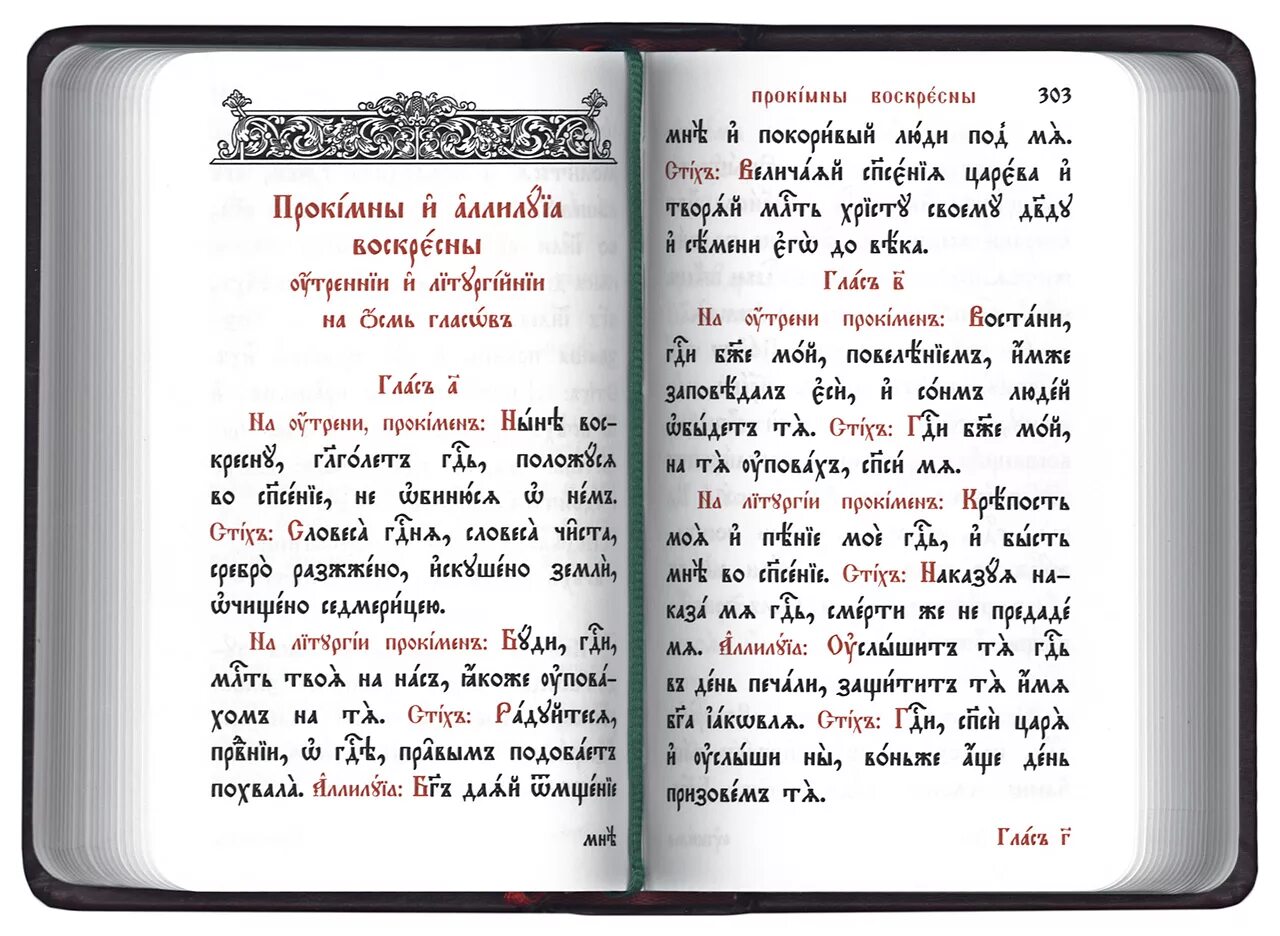 Прокі́мны и҆ а҆ллилꙋ́їа
воскрє́сны
ᲂу҆́трєннїи и҆ лїтꙋргі́йнїи
на ѻ҆́смь гласѡ́въ
Гла́съ а҃
На ᲂу҆́трени, прокі́менъ: Ны́нѣ вос-
кресну̀, гл҃го́летъ гдⷭ҇ь, положꙋ́сѧ
во сп҃се́нїе, не ѡ҆биню́сѧ ѡ҆ не́мъ.
Сті́хъ: Словеса̀ гдⷭ҇нѧ, словеса̀ чи̑ста,
сребро̀ разжже́но, и҆скꙋше́но землѝ,
ѡ҆чище́но седмери́цею.
На лїтꙋргі́и прокі́менъ: Бꙋ́ди, гдⷭ҇и,
млⷭ҇ть твоѧ̀ на на́съ, ꙗ҆́коже ᲂу҆пова́-
хомъ на тѧ̀. Сті́хъ: Ра́дꙋйтесѧ,
првⷣнїи, ѡ҆ гдⷭ҇ѣ, пра̑вымъ подоба́етъ
похвала̀. А҆ллилꙋ́їа: Бг҃ъ даѧ́й ѿмще́нїе
мнѣ̀
прокі́мны воскрє́сны 303
мнѣ̀ и҆ покори́вый лю́ди под̾ мѧ̀.
Сті́хъ: Велича́ѧй сп҃сє́нїѧ царє́ва и҆
творѧ́й млⷭ҇ть хрїстꙋ̀ своемꙋ̀ дв҃дꙋ
и҆ сѣ́мени є҆гѡ̀ до вѣ́ка.
Гла́съ в҃
На ᲂу҆́трени прокі́менъ: Воста́ни,
гдⷭ҇и бж҃е мо́й, повелѣ́нїемъ, и҆́мже
заповѣ́далъ є҆сѝ, и҆ со́нмъ люде́й
ѡ҆бы́детъ тѧ̀. Сті́хъ: Гдⷭ҇и бж҃е мо́й,
на тѧ̀ ᲂу҆пова́хъ, сп҃си́ мѧ.
На лїтꙋргі́и прокі́менъ: Крѣ́пость
моѧ̀ и҆ пѣ́нїе моѐ гдⷭ҇ь, и҆ бы́сть
мнѣ̀ во сп҃се́нїе. Сті́хъ: Наказꙋ́ѧ на-
каза́ мѧ гдⷭ҇ь, сме́рти же не предаде́
мѧ. А҆ллилꙋ́їа: ᲂУ҆слы́шитъ тѧ̀ гдⷭ҇ь
въ де́нь печа́ли, защи́титъ тѧ̀ и҆́мѧ
бг҃а і҆а́кѡвлѧ. Сті́хъ: Гдⷭ҇и, сп҃сѝ царѧ̀
и҆ ᲂу҆слы́ши ны̀, во́ньже а҆́ще де́нь
призове́мъ тѧ̀.
Гла́съ г҃